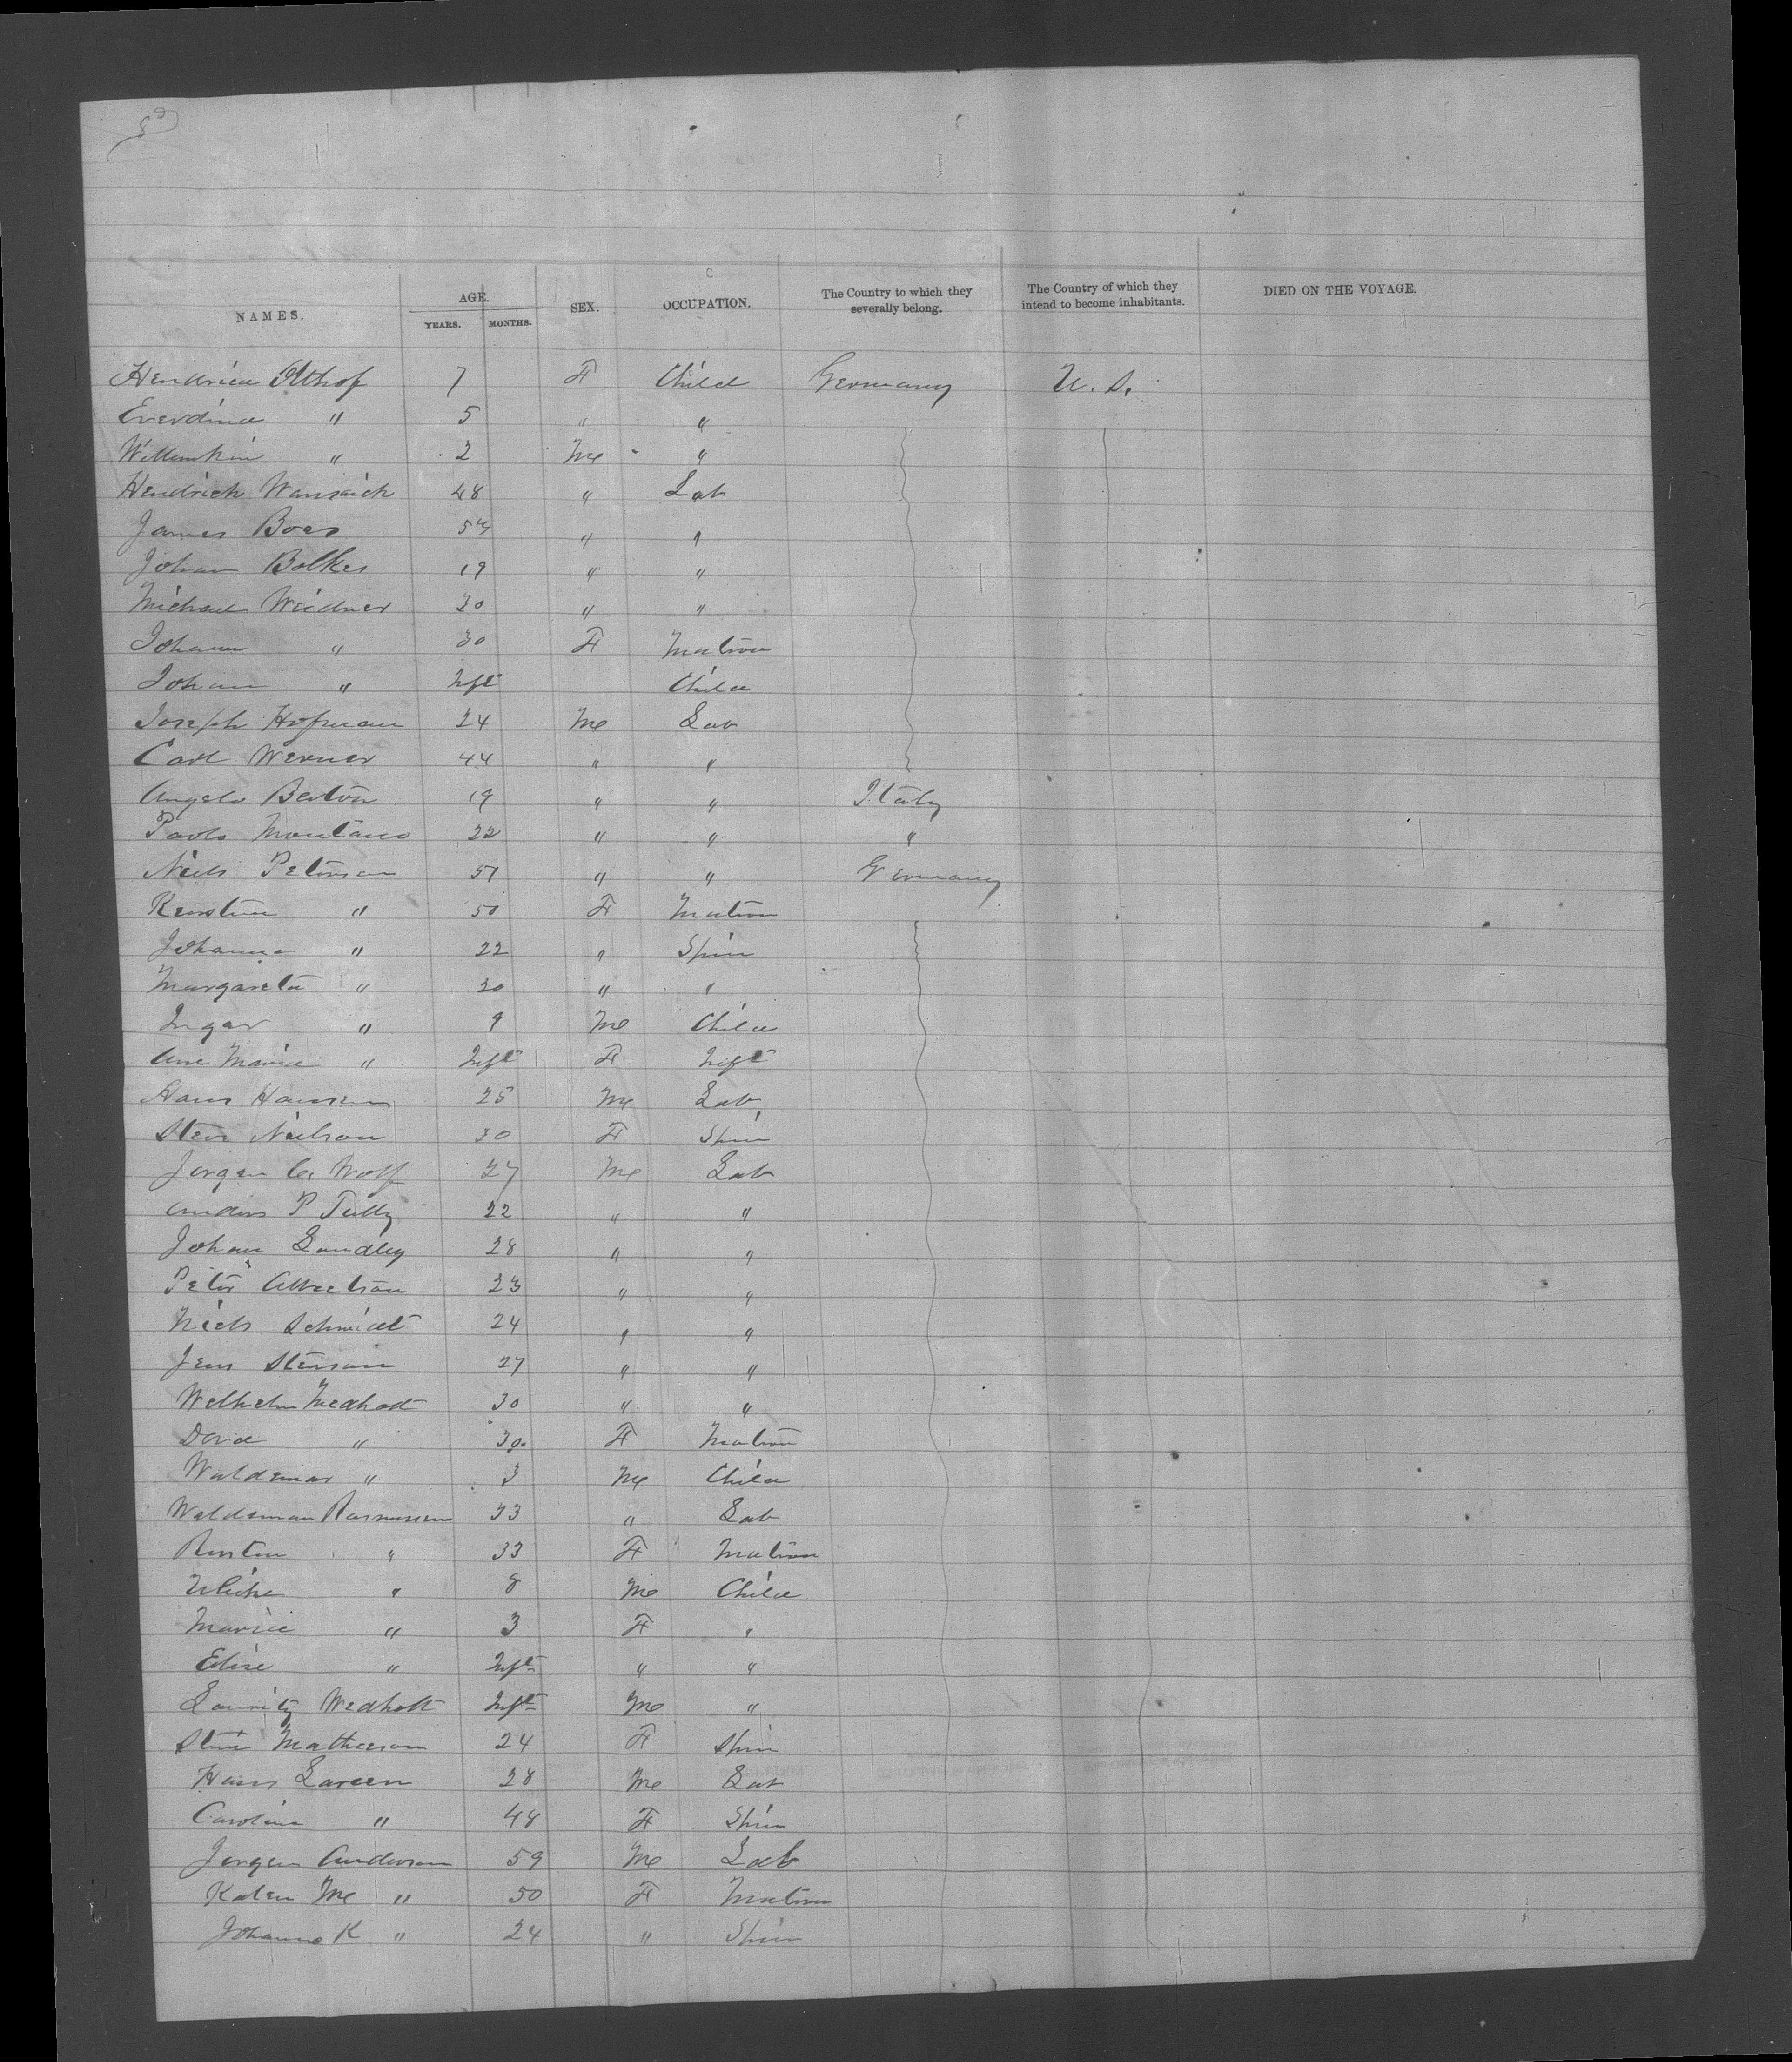 NAMES. AGE. YEARS. MONTHS. SEX. OCCUPATION. The Country to which they severally belong. The Country of which they intend to become inhabitants. DIED ON THE VOYAGE.
Hendrica Althof 7 F Child Germany U. S.
Everdina " 5 " "
" 2 Me "
Hendrich 48 " Lab
James Boes 54 " "
Johan Bolkes 19 " "
Michael Weidner 30 " "
Johann " 30 F Matron
Johan " Inft Child
Joseph Hofman 24 Me Lab
Carl Werner 44 " "
Angelo 19 " " Italy
Paolo Montano 22 " " "
Niels Peterson 51 " " Germany
" 50 F Matron
Johanna " 22 " Spin
Margareta " 20 " "
Inger " 9 Me Child
Ane Marie " Inft F Inft
Hans Hansen 25 Me Lab
Neilson 30 F Spin
Jorgen C. Wolf 27 Me Lab
Anders P 22 " "
Johan 28 " "
Peter 23 " "
Niels Schmidt 24 " "
Jens 27 " "
Welhelm 30 " "
" 30 F Matron
Waldemar " 3 Me Child
Waldemar Rasmussen 33 " Lab
" 33 F Matron
" 8 Me Child
Marie " 3 F "
Elise " Inft " "
Wedholt Inft Me "
Stine Mathieson 24 F Spin
Hans Larsen 28 Me Lab
Caroline " 48 F Spin
Jorgen Anderson 59 Me Lab
Karen Me " 50 F Matron
Johanne K " 24 " Spin